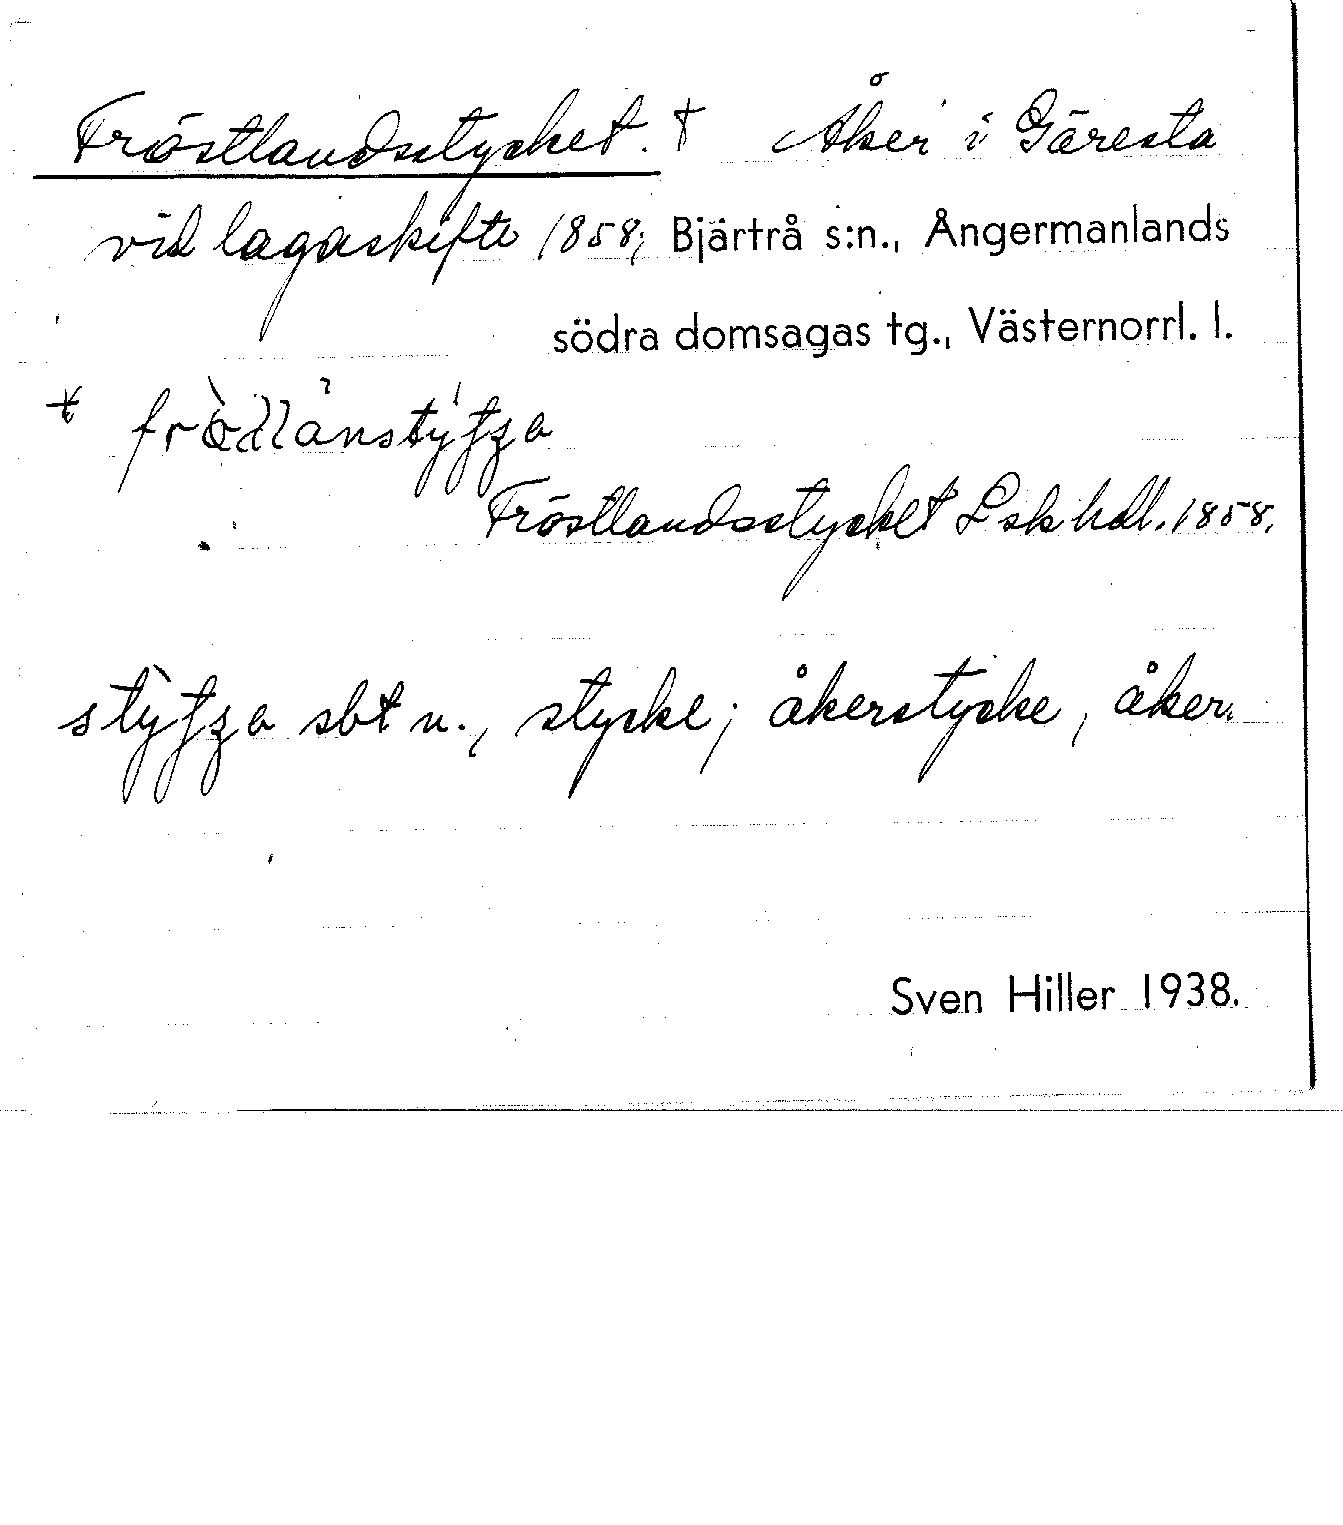 Fröstlandsstycket. † Åker i Gäresta
vid lagaskifte 1858; Bjärtrå s:n., Ångermanlands
södra domsagas tg., Västernorrl. l.
Fröstlandsstycket Lsk hdl. 1858.
sbt n., stycke; åkerstycke, åker.
Sven Hiller 1938.